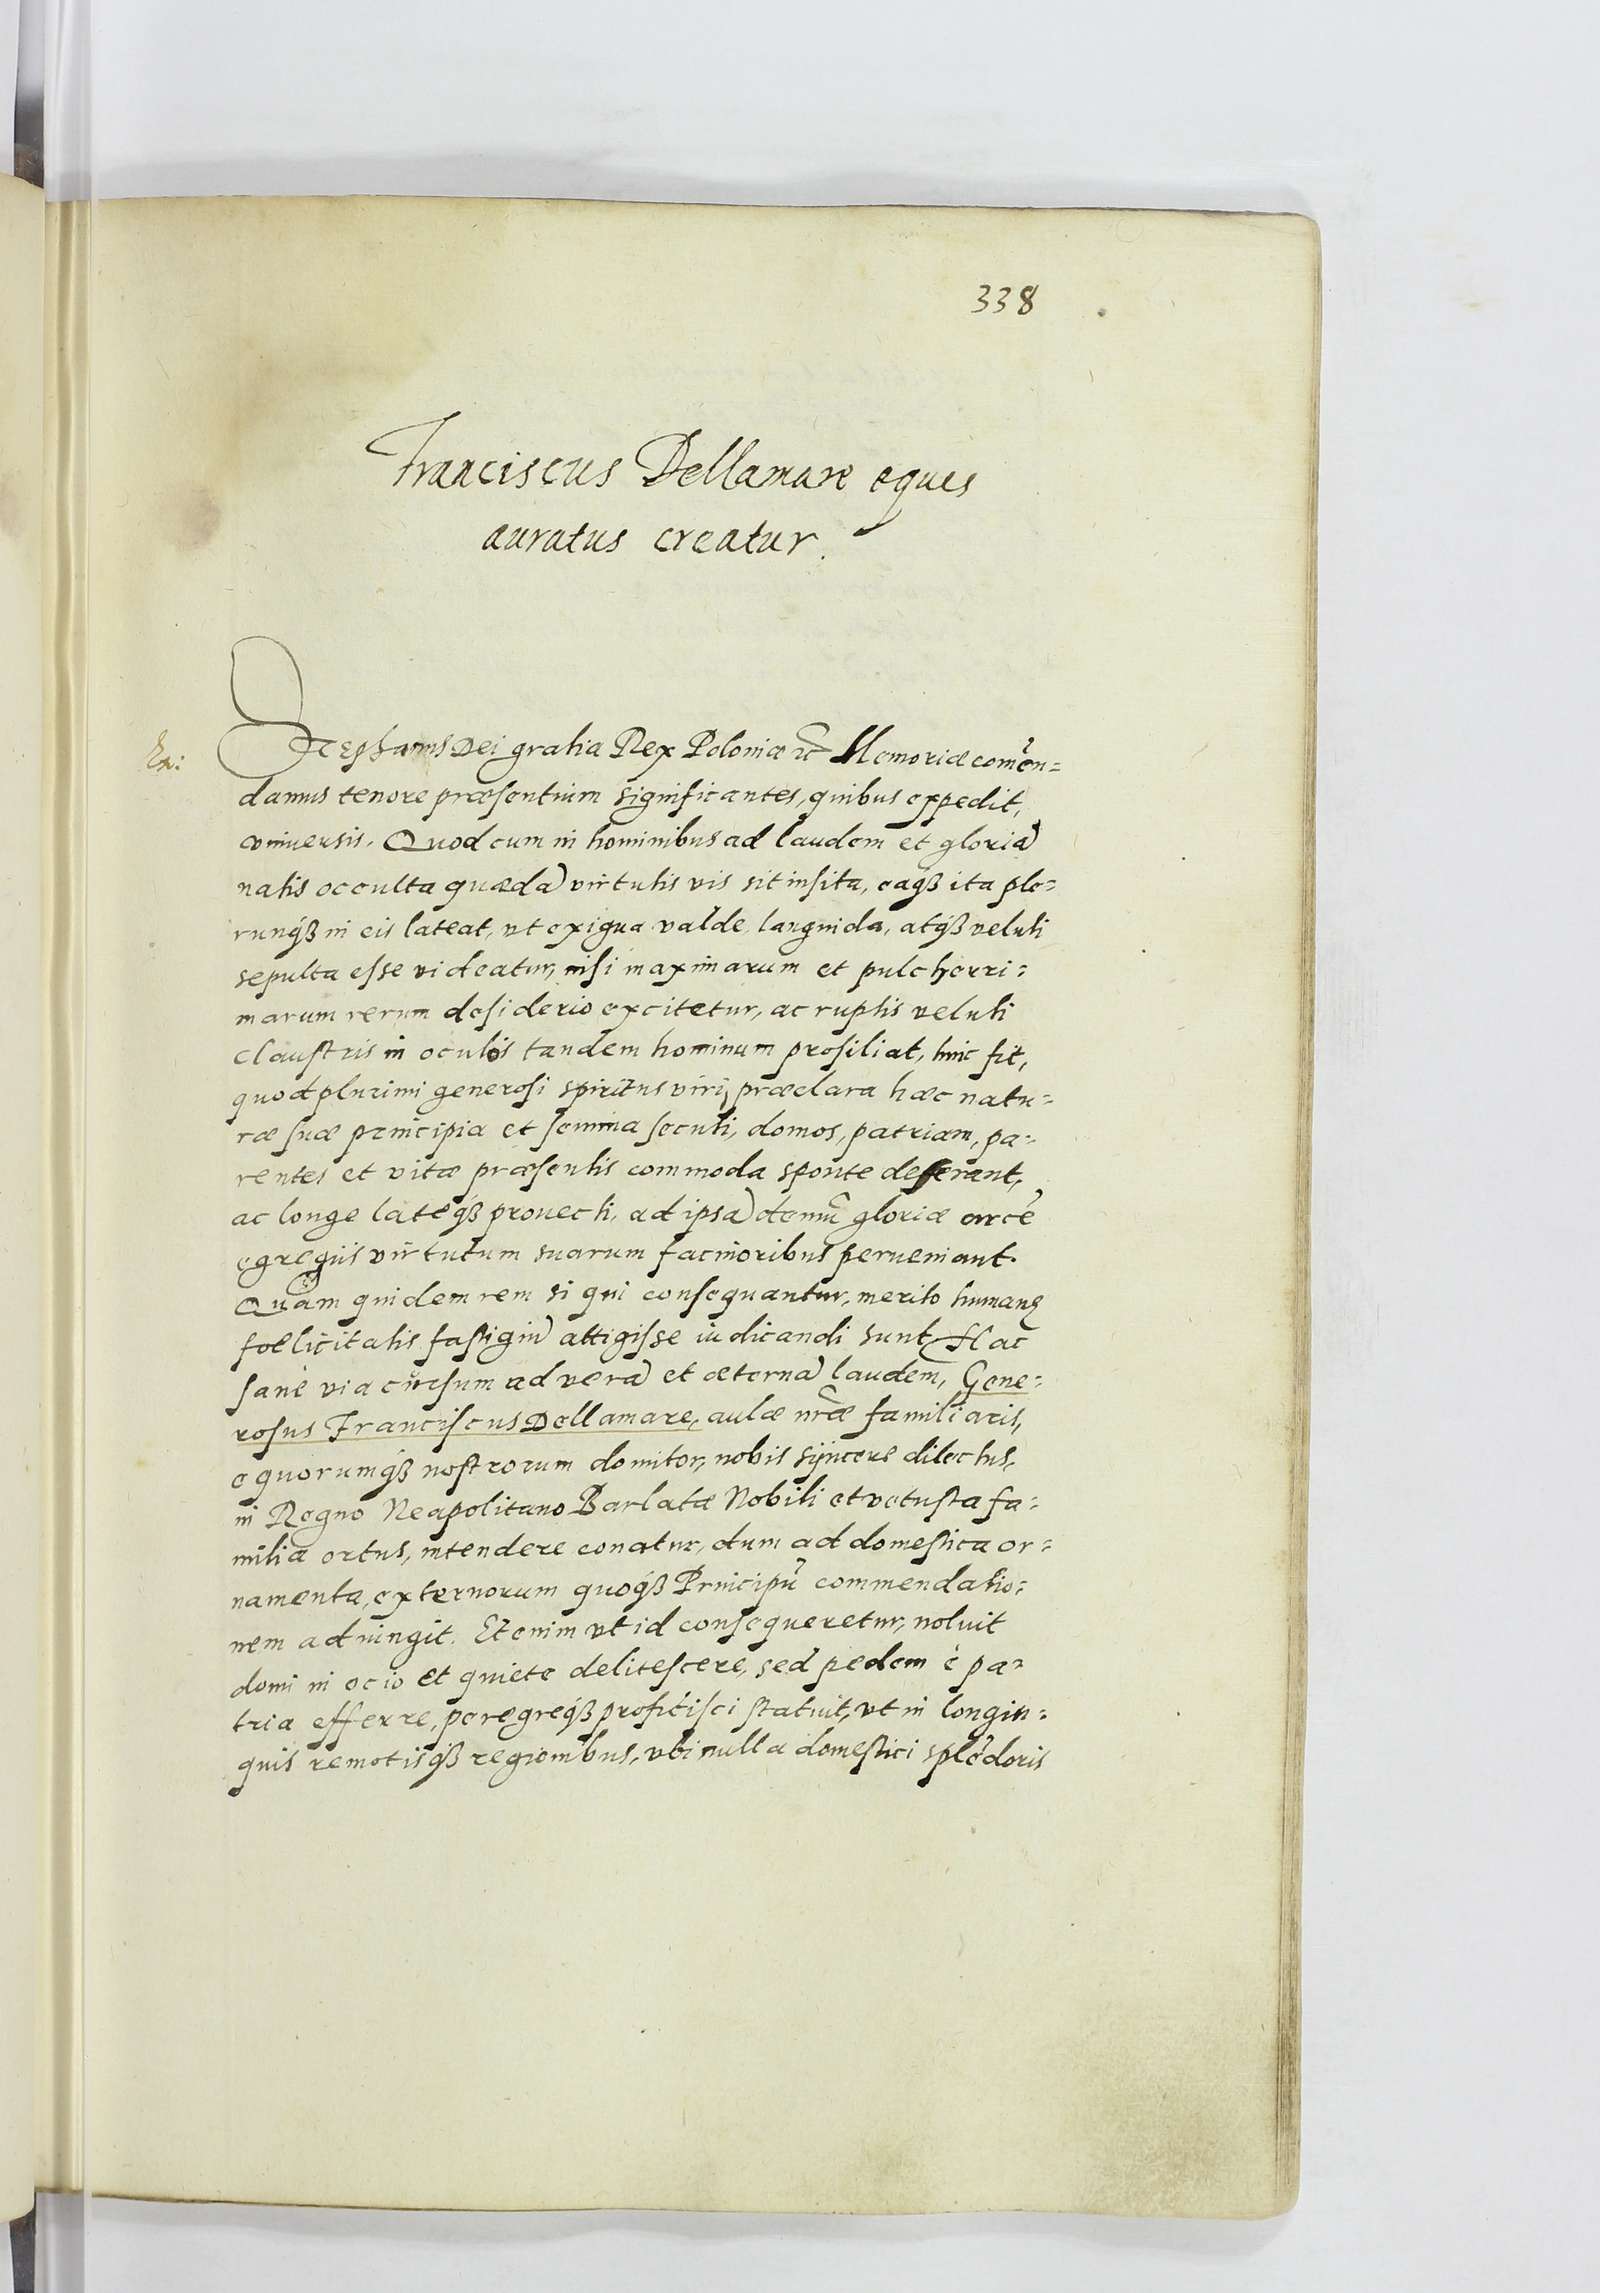 338
Franciscus Dellamare eques
auratus creatur.
Stephanus Dei gratia Rex Poloniæ etc̃ Memoriæ comẽn=
damus tenore præsentium significantes, quibus expedit,
vniuersis. Quod cum in hominibus ad laudem et gloriã
natis occulta quædã virtutis vis sit insita, eaqꝫ ita ple=
runqꝫ in eis lateat, vt exigua valde, languida, atqꝫ veluti
sepulta esse videatur, nisi maximarum et pulcherri=
marum rerum desiderio excitetur, ac ruptis veluti
claustris in oculos tandem hominum prosiliat, hinc fit,
quod plurimi generosi spiritus viri, præclara hæc natu=
ræ suæ principia et semina secuti, domos, patriam, pa=
rentes et vitæ præsentis commoda sponte deserant,
ac longe lateqꝫ prouecti, ad ipsã demũ gloriæ arcẽ
egregiis virtutum suarum facinoribus perueniant.
Quam quidem rem si qui consequantur, merito humanę
fœlicitatis fastigiũ attigisse iudicandi sunt. Hac
sanè via cursum ad verã et æternã laudem, Gene=
rosus Franciscus Dellamare, aulæ nr̃æ familiaris,
equorumqꝫ nostrorum domitor, nobis syncere dilectus,
in Regno Neapolitano Barlatæ Nobili et vetusta fa=
milia ortus, intendere conatur, dum ad domestica or=
namenta, externorum quoqꝫ Principũ commendatio=
nem adiungit. Etenim vt id consequeretur, noluit
domi in ocio et quiete delitescere, sed pedem è pa=
tria efferre, peregreqꝫ proficisci statuit, vt in longin=
quis remotisqꝫ regionibus, vbi nulla domestici splẽdoris